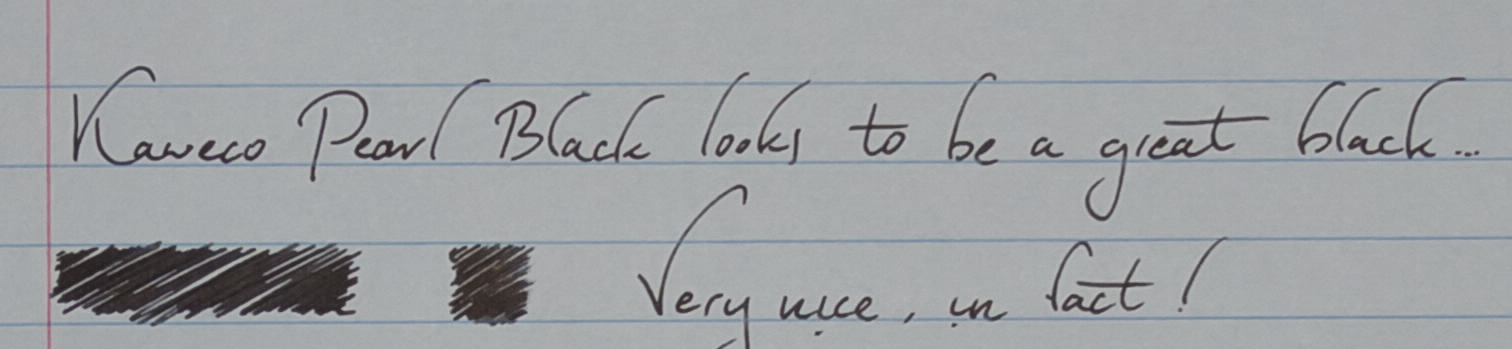 Kaweco Pearl Black looks to be a great black...
Very nice, in fact!